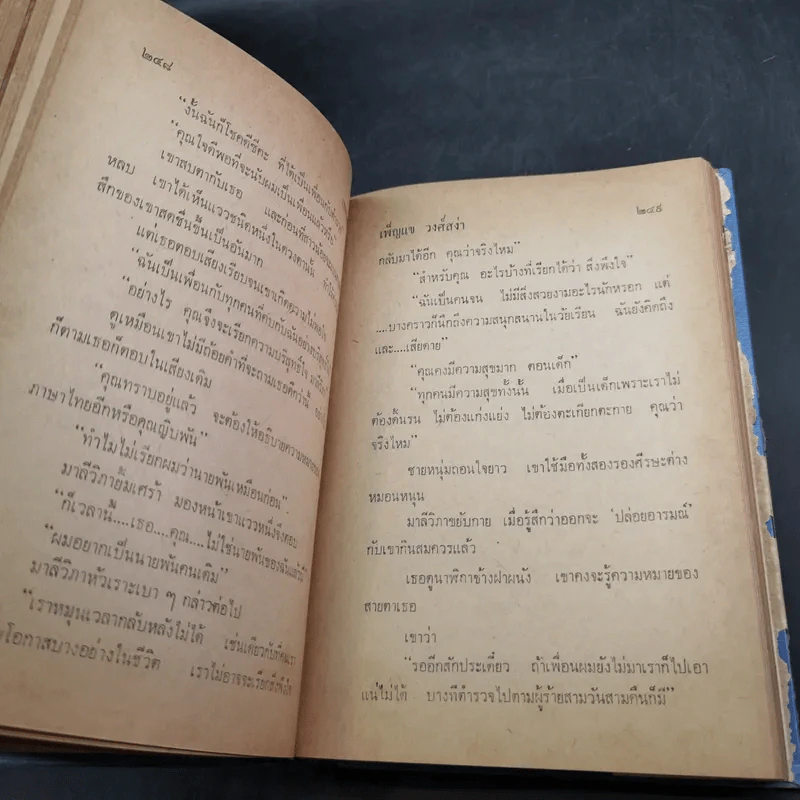 ๒๔๘
“งั้นฉันก็โชคดีซีคะ ที่ได้เป็นเพื่อนกับ
“คุณใจดีพอที่จะนับผมเป็นเพื่อนแล้วหรือ”
เขาสบตากับเธอ และก่อนที่สาวน้อยจะ
หลบ เขาได้เห็นแววชนิดหนึ่งในดวงตานั้น
สึกของเขาสดชื่นขึ้นเป็นอันมาก
แต่เธอตอบเสียงเรียบจนเขาเกิดความไม่พอใจ
“ฉันเป็นเพื่อนกับทุกคนที่คบกับฉันอย่างบริสุทธิ์
“อย่างไร คุณจึงจะเรียกความบริสุทธิ์ใจ
ดูเหมือนเขาไม่มีถ้อยคำที่จะถามเธอดีกว่านี้
ก็ตามเธอก็ตอบในเสียงเดิม
“คุณทราบอยู่แล้ว จะต้องให้อธิบายความหมาย
ภาษาไทยอีกหรือคุณญิบพัน”
“ทำไมไม่เรียกผมว่านายพันเหมือนก่อน”
มาลีวิภายิ้มเศร้า มองหน้าเขาแววหนึ่งจึงตอบ
“ก็เวลานี้....เธอ....คุณ....ไม่ใช่นายพันของฉันแล้วนี่”
“ผมอยากเป็นนายพันคนเดิม”
มาลีวิภาหัวเราะเบา ๆ กล่าวต่อไป
“เราหมุนเวลากลับหลังไม่ได้ เช่นเดียวกับที่คนเรา
โอกาสบางอย่างในชีวิต เราไม่อาจจะเรียกสิ่งที่
เพ็ญแข วงศ์สง่า
๒๔๙
กลับมาได้อีก คุณว่าจริงไหม”
“สำหรับคุณ อะไรบ้างที่เรียกได้ว่า สิ่งพึงใจ”
“ฉันเป็นคนจน ไม่มีสิ่งสวยงามอะไรนักหรอก แต่
....บางคราวก็นึกถึงความสนุกสนานในวัยเรียน ฉันยังคิดถึง
และ....เสียดาย”
“คุณคงมีความสุขมาก ตอนเด็ก”
“ทุกคนมีความสุขทั้งนั้น เมื่อเป็นเด็กเพราะเราไม่
ต้องดิ้นรน ไม่ต้องแก่งแย่ง ไม่ต้องตะเกียกตะกาย คุณว่า
จริงไหม”
ชายหนุ่มถอนใจยาว เขาใช้มือทั้งสองรองศีรษะต่าง
หมอนหนุน
มาลีวิภาขยับกาย เมื่อรู้สึกว่าออกจะ ‘ปล่อยอารมณ์’
กับเขากินสมควรแล้ว
เธอดูนาฬิกาข้างฝาผนัง เขาคงจะรู้ความหมายของ
สายตาเธอ
เขาว่า
“รออีกสักประเดี๋ยว ถ้าเพื่อนผมยังไม่มาเราก็ไปเอา
แน่ไม่ได้ บางทีตำรวจไปตามผู้ร้ายสามวันสามคืนก็มี”